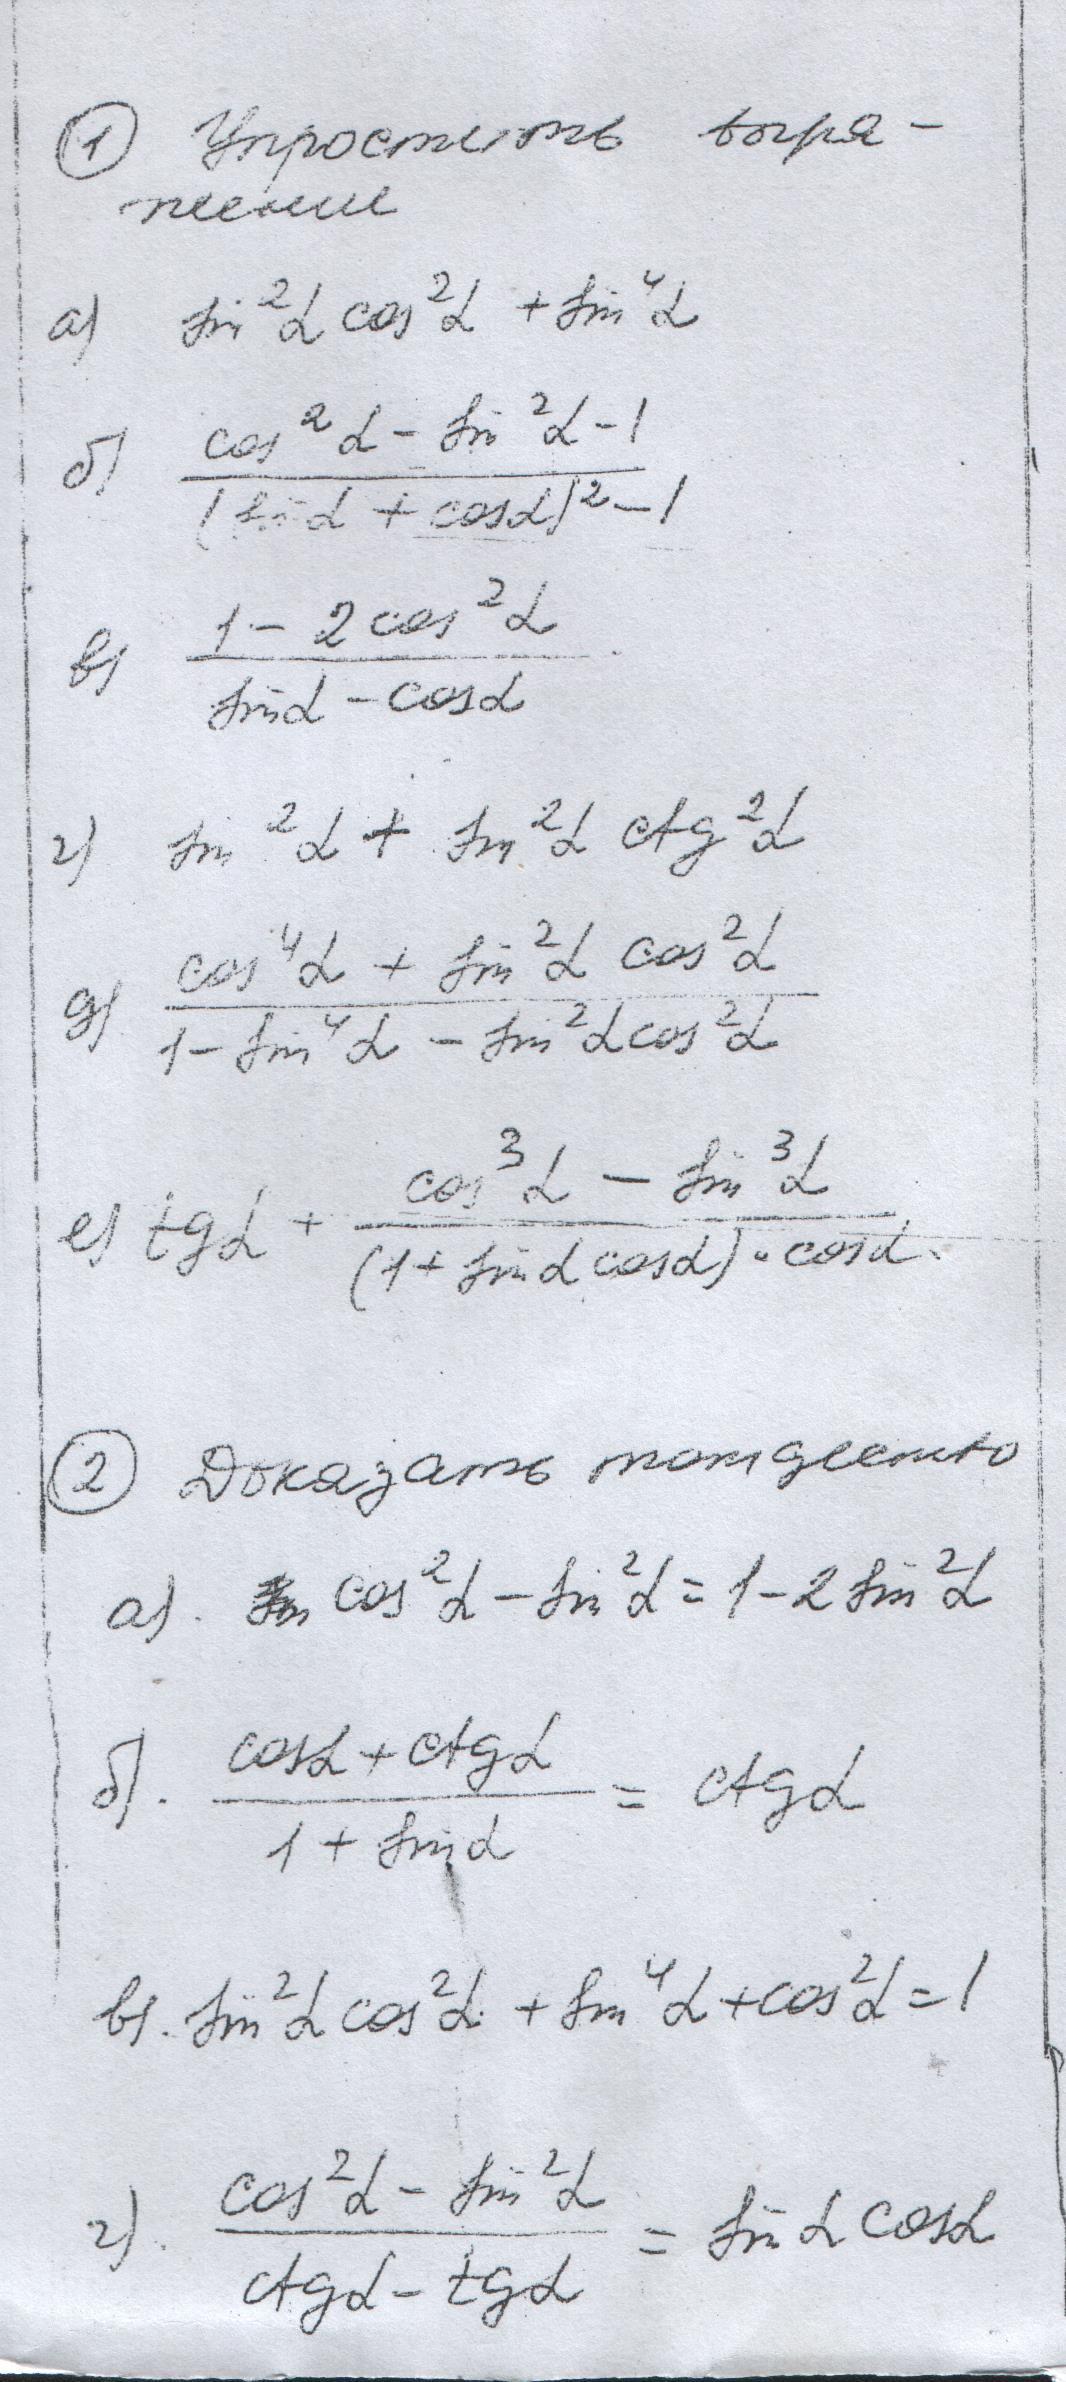 ① Упростить выра-
жение
а) sin²α cos²α + sin⁴α
б) (cos²α - sin²α - 1) / ((sinα + cosα)² - 1)
в) (1 - 2cos²α) / (sinα - cosα)
г) sin²α + sin²α ctg²α
д) (cos⁴α + sin²α cos²α) / (1 - sin⁴α - sin²α cos²α)
е) tgα + (cos³α - sin³α) / ((1 + sinα cosα) · cosα)
② Доказать тождество
а). cos²α - sin²α = 1 - 2sin²α
б). (cosα + ctgα) / (1 + sinα) = ctgα
в). sin²α cos²α + sin⁴α + cos²α = 1
г). (cos²α - sin²α) / (ctgα - tgα) = sinα cosα